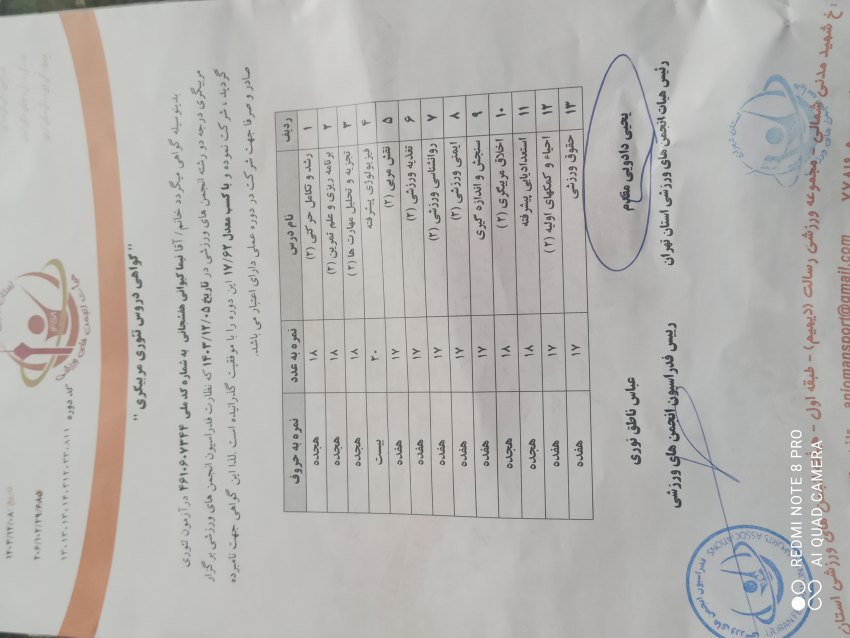 ۱۴۰۳/۱۲/۰۸
۲۰۶/۱۰۲/۲۹/۶۸۵
کد دوره
"گواهی دروس تئوری مربیگری"
بدینوسیله گواهی میگردد خانم/ آقا نیما کیوانی هفشجانی به شماره کد ملی ۴۶۱۰۶۰۷۳۴۴ در آزمون تئوری
مربیگری درجه دو رشته انجمن های ورزشی در تاریخ ۱۴۰۳/۱۲/۰۵ که نظارت فدراسیون انجمن های ورزشی برگزار
گردید ، شرکت نموده و با کسب معدل ۱۷/۶۲ این دوره را با موفقیت گذرانیده است .لذا این گواهی جهت نامبرده
صادر و صرفا جهت شرکت در دوره عملی دارای اعتبار می باشد.
ردیف نام درس نمره به عدد نمره به حروف
۱ رشد و تکامل حرکتی (۲) ۱۸ هجده
۲ برنامه ریزی و علم تمرین (۲) ۱۸ هجده
۳ تجزیه و تحلیل مهارت ها (۲) ۱۸ هجده
۴ فیزیولوژی پیشرفته ۲۰ بیست
۵ نقش مربی (۲) ۱۷ هفده
۶ تغذیه ورزشی (۲) ۱۷ هفده
۷ روانشناسی ورزشی (۲) ۱۷ هفده
۸ ایمنی ورزشی (۲) ۱۷ هفده
۹ سنجش و اندازه گیری ۱۷ هفده
۱۰ اخلاق مربیگری (۲) ۱۸ هجده
۱۱ استعدادیابی پیشرفته ۱۸ هجده
۱۲ احیاء و کمکهای اولیه (۲) ۱۷ هفده
۱۳ حقوق ورزشی ۱۷ هفده
یحیی دادویی مقدم
رئیس هیات انجمن های ورزشی استان تهران
عباس ناطق نوری
رییس فدراسیون انجمن های ورزشی
خ شهید مدنی شمالی - مجموعه ورزشی رسالت (دیهیم) - طبقه اول -
anjomansport@gmail.com
REDMI NOTE 8 PRO
AI QUAD CAMERA